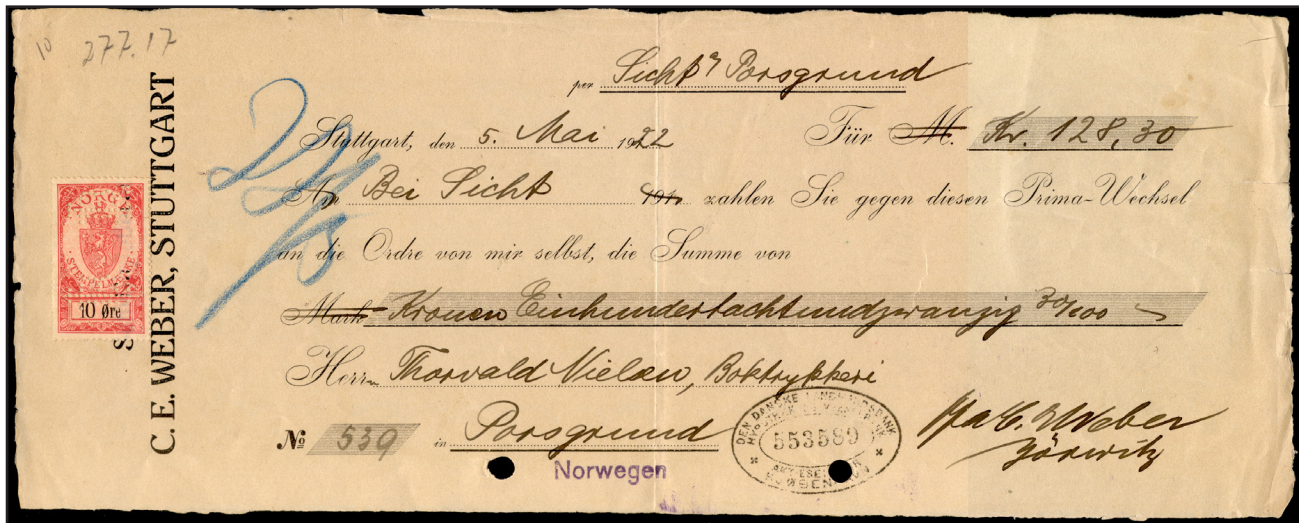 10 277.17
C. E. WEBER, STUTTGART
NORGE
STEMPELMERKE
10 Øre
per Sicht Porsgrund
Stuttgart, den 5. Mai 1922 Für M. Kr. 128,30
An Bei Sicht 191 zahlen Sie gegen diesen Prima-Wechsel
an die Ordre von mir selbst, die Summe von
Mark Kronen Einhundertachtundzwanzig 30/100
Herrn Thorvald Nielsen, Boktrykkeri
No 539 in Porsgrund
Norwegen
DEN DANSKE LANDMANDSBANK
553580
AKTIESELSKAB
KJØBENHAVN
ppa C. E. Weber